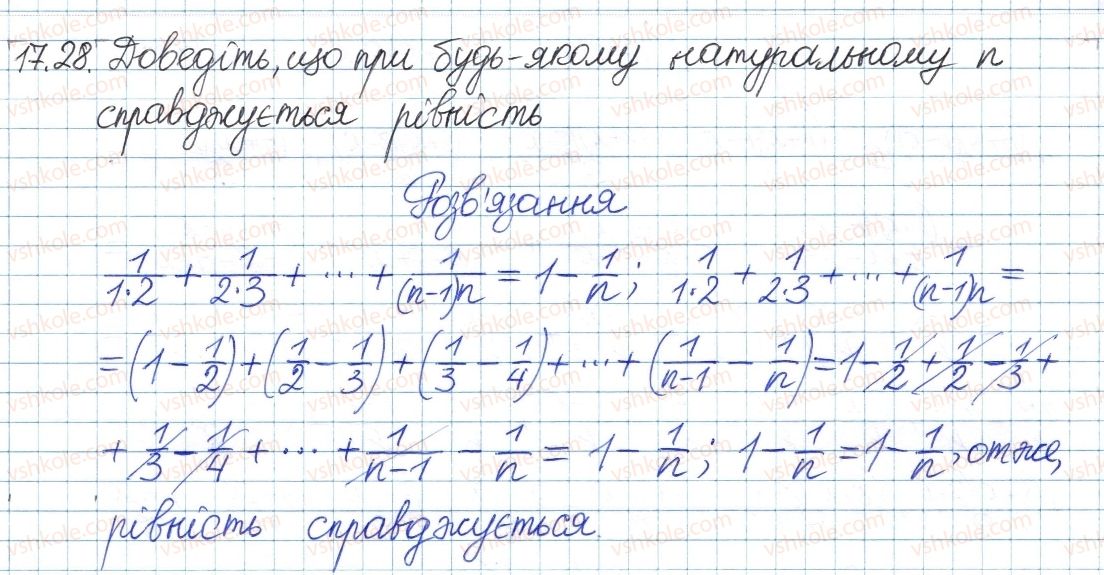 17.28. Доведіть, що при будь-якому натуральному n
справджується рівність
Розв'язання
1/(1·2) + 1/(2·3) + ... + 1/((n-1)n) = 1 - 1/n; 1/(1·2) + 1/(2·3) + ... + 1/((n-1)n) =
= (1 - 1/2) + (1/2 - 1/3) + (1/3 - 1/4) + ... + (1/(n-1) - 1/n) = 1 - 1/2 + 1/2 - 1/3 +
+ 1/3 - 1/4 + ... + 1/(n-1) - 1/n = 1 - 1/n; 1 - 1/n = 1 - 1/n, отже,
рівність справджується.
vshkole.com